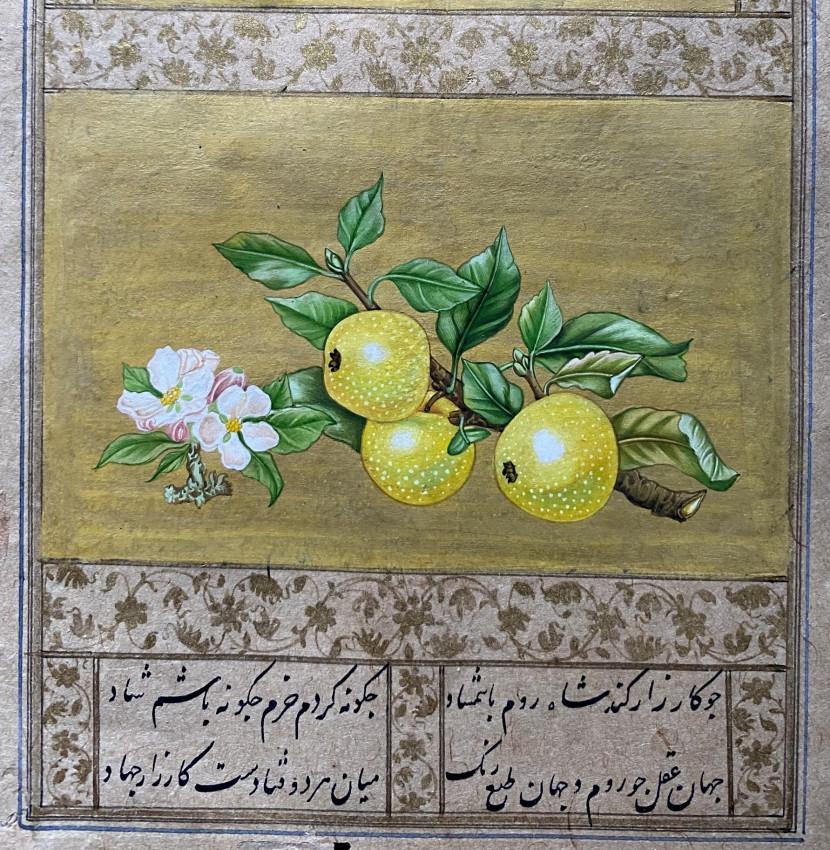 جو کارزار کند شاه روم باشمشاد
جکونه کردم خرم جکونه باشم شاد
جهان عقل جو روم و جهان طبع رنک
میان هردو فتادست کارزار جهاد